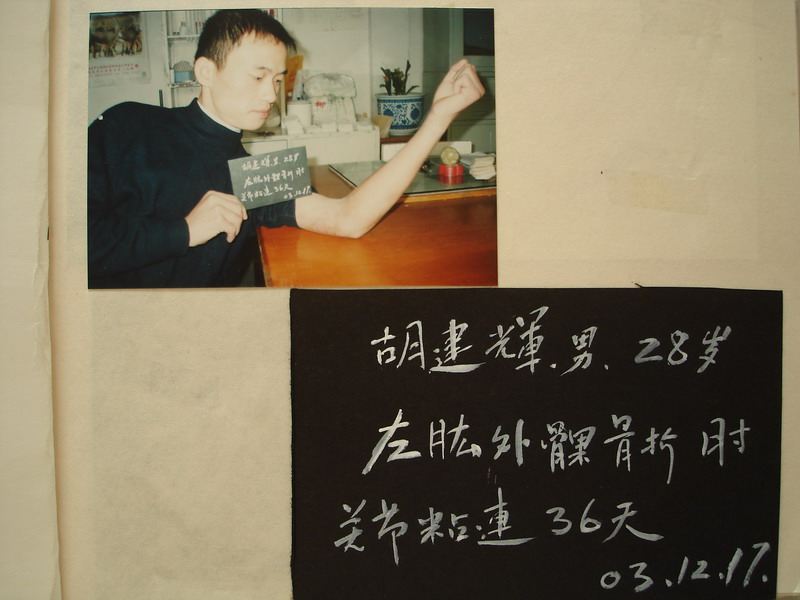 胡建輝.男.28岁
左肱外髁骨折肘
关节粘連36天
03.12.17.
胡建輝.男.28岁
左肱外髁骨折 肘
关节粘連 36天
03.12.17.